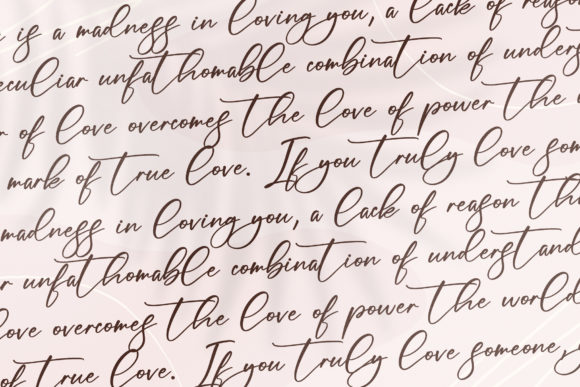 is a madness in loving you, a lack of reason
peculiar unfathomable combination of unders
of love overcomes the love of power the
mark of true love. If you truly love som
madness in loving you, a lack of reason tha
unfathomable combination of understand
love overcomes the love of power the world
of true love. If you truly love someone,